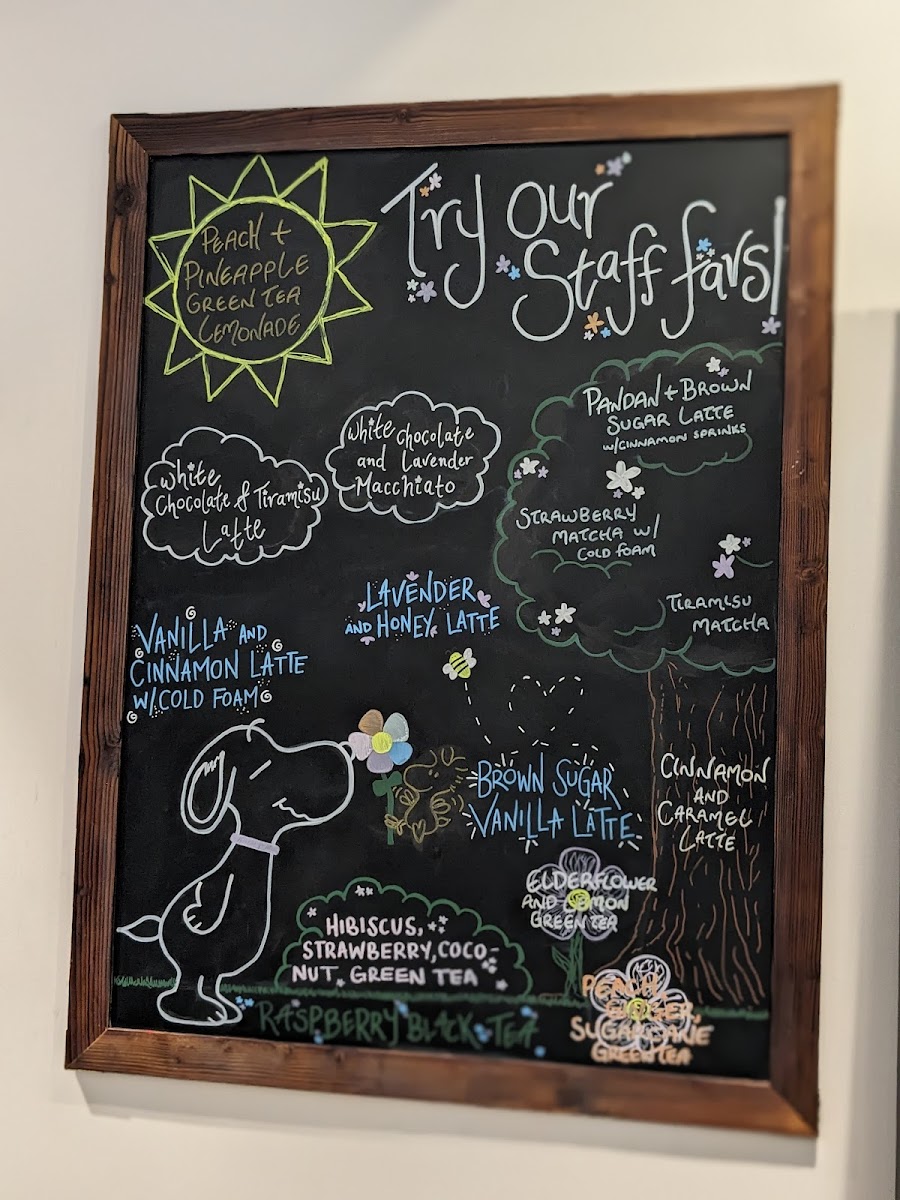 Try our
Staff favs!
PEACH +
PINEAPPLE
GREEN TEA
LEMONADE
PANDAN + BROWN
SUGAR LATTE
W/CINNAMON SPRINKS
White chocolate
and Lavender
Macchiato
White
Chocolate & Tiramisu
Latte
STRAWBERRY
MATCHA W/
COLD FOAM
TIRAMISU
MATCHA
LAVENDER
AND HONEY LATTE
VANILLA AND
CINNAMON LATTE
W/COLD FOAM
BROWN SUGAR
VANILLA LATTE
CINNAMON
AND
CARAMEL
LATTE
ELDERFLOWER
AND LEMON
GREEN TEA
HIBISCUS,
STRAWBERRY, COCO-
NUT, GREEN TEA
RASPBERRY BLACK TEA
PEACH,
GINGER,
SUGARCANE
GREEN TEA